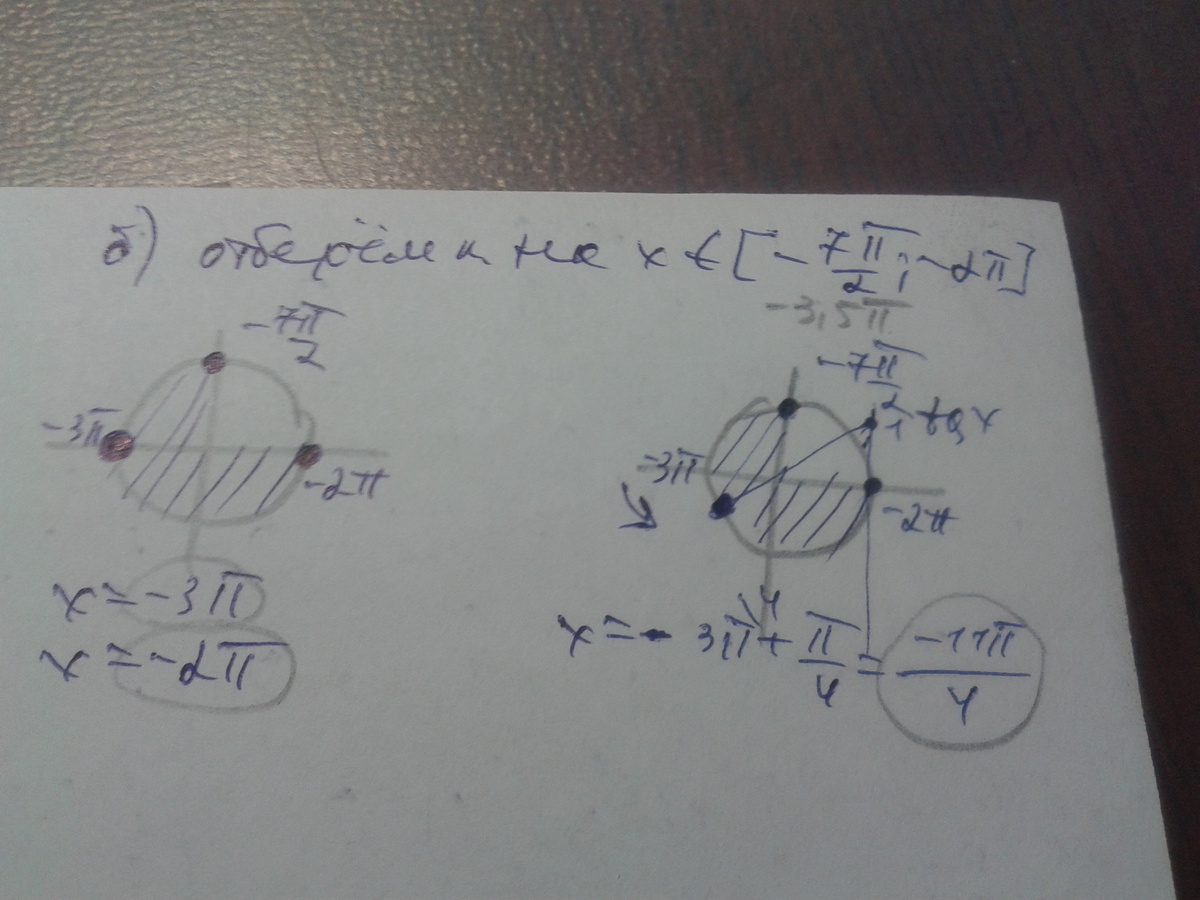 б) отберём к на x ∈ [-7π/2; -2π]
-3,5π
-7π/2
-3π
-2π
x = -3π
x = -2π
-7π/2
1 tg x
-3π
-2π
x = -3π\4 + π/4 = -11π/4